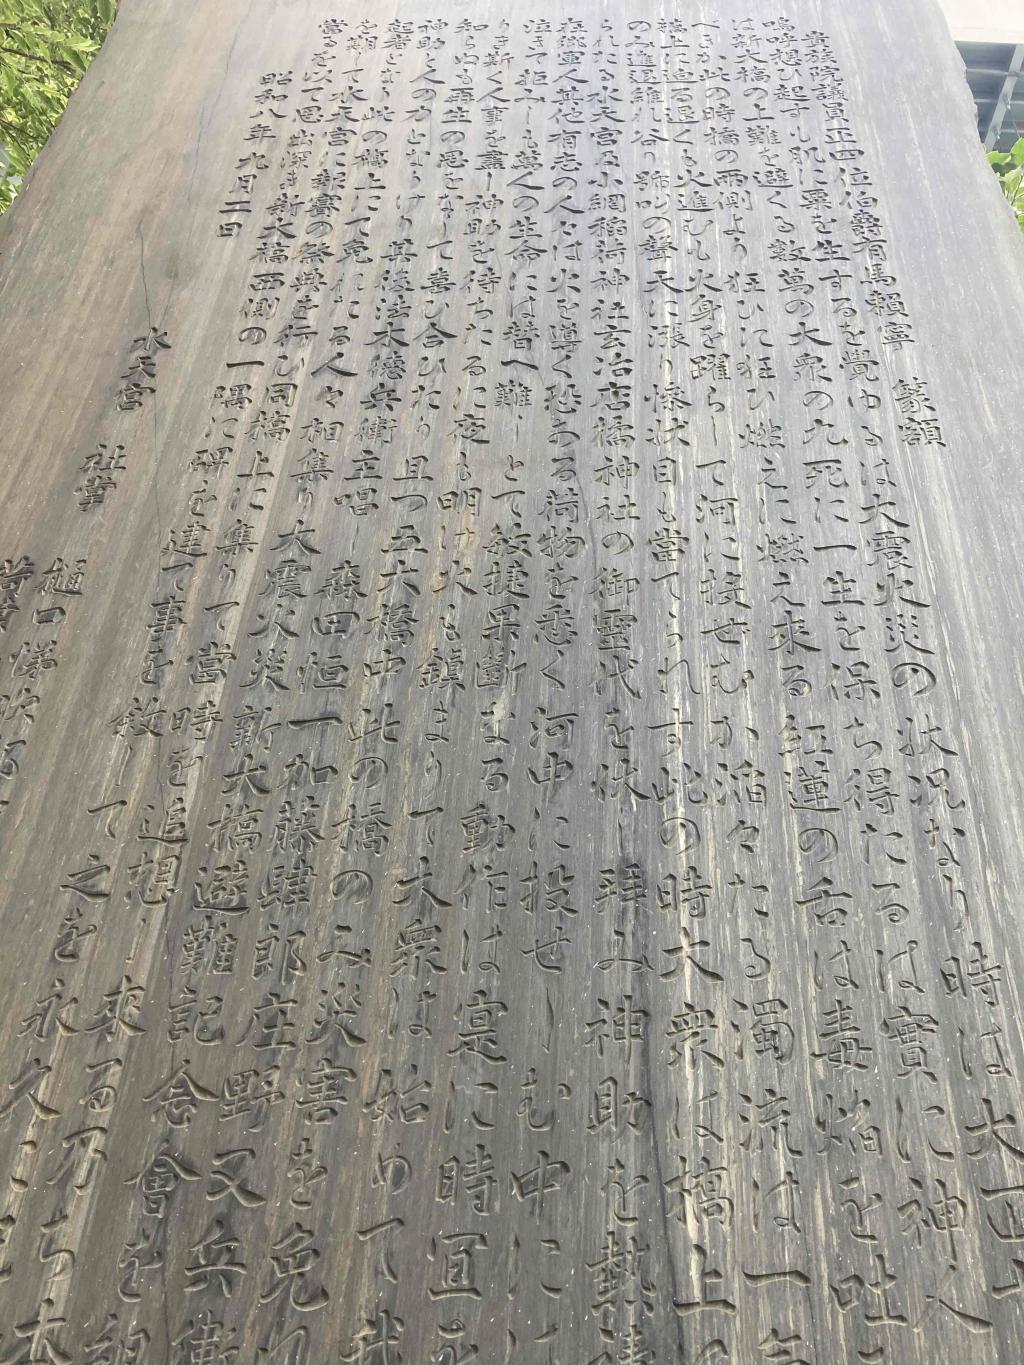 貴族院議員正四位伯爵有馬頼寧　篆額
嗚呼想ひ起すも肌に粟を生するを覺ゆるは大震火災の状況なり時は大正
は新大橋の上難を避くる數萬の大衆の九死に一生を保ち得たるは實に神人
べきか此の時橋の両側より狂ひに狂ひ燃えに燃え来る紅蓮の舌は毒焔を吐
橋上に迫る退くも火進むも火身を躍らして河に投ぜむか滔々たる濁流は一
のみ進退維れ谷り號叫の聲天に漲り惨状目も當てられす此の時大衆は橋上
られたる水天宮及小網稲荷神社玄冶店橘神社の御霊代を伏し拝み神助を熱
在郷軍人其他有志の人々は火を導く恐ある荷物を悉く河中に投せしむ中に
泣きて拒みしも萬人の生命には替へ難しとて敏捷果斷なる動作は寔に時宜
りき斯く人事を盡し神助を待ちたるに夜も明け火も鎮まりて大衆は始めて我
知らぬも再生の思をなして喜び合ひたり且つ五大橋中此の橋のみ災害を免れ
神助と人の力となりけり其後法木徳兵衛主唱し森田恒一加藤肆郎庄野又兵衛
起者となり此の橋上にて免れたる人々相集り大震火災新大橋避難記念會を
を期して水天宮に報賽の祭典を行ひ同橋上に集りて當時を追想し來る乃ち本
當るを以て思出深き新大橋西側の一隅に碑を建て事を敘して之を永久に
昭和八年九月二日
水天宮　社掌　樋口悌次郎